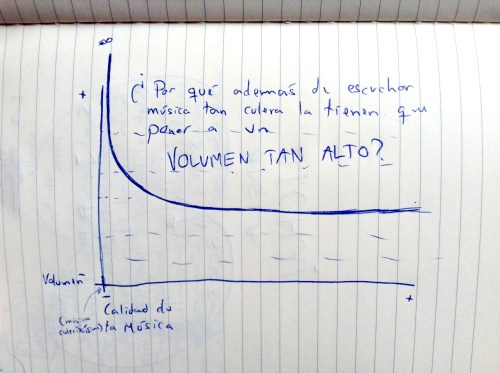 ∞
+
¿Por qué además de escuchar
música tan culera la tienen que
poner a un
VOLUMEN TAN ALTO?
Volumen
-
+
Calidad de
la Música